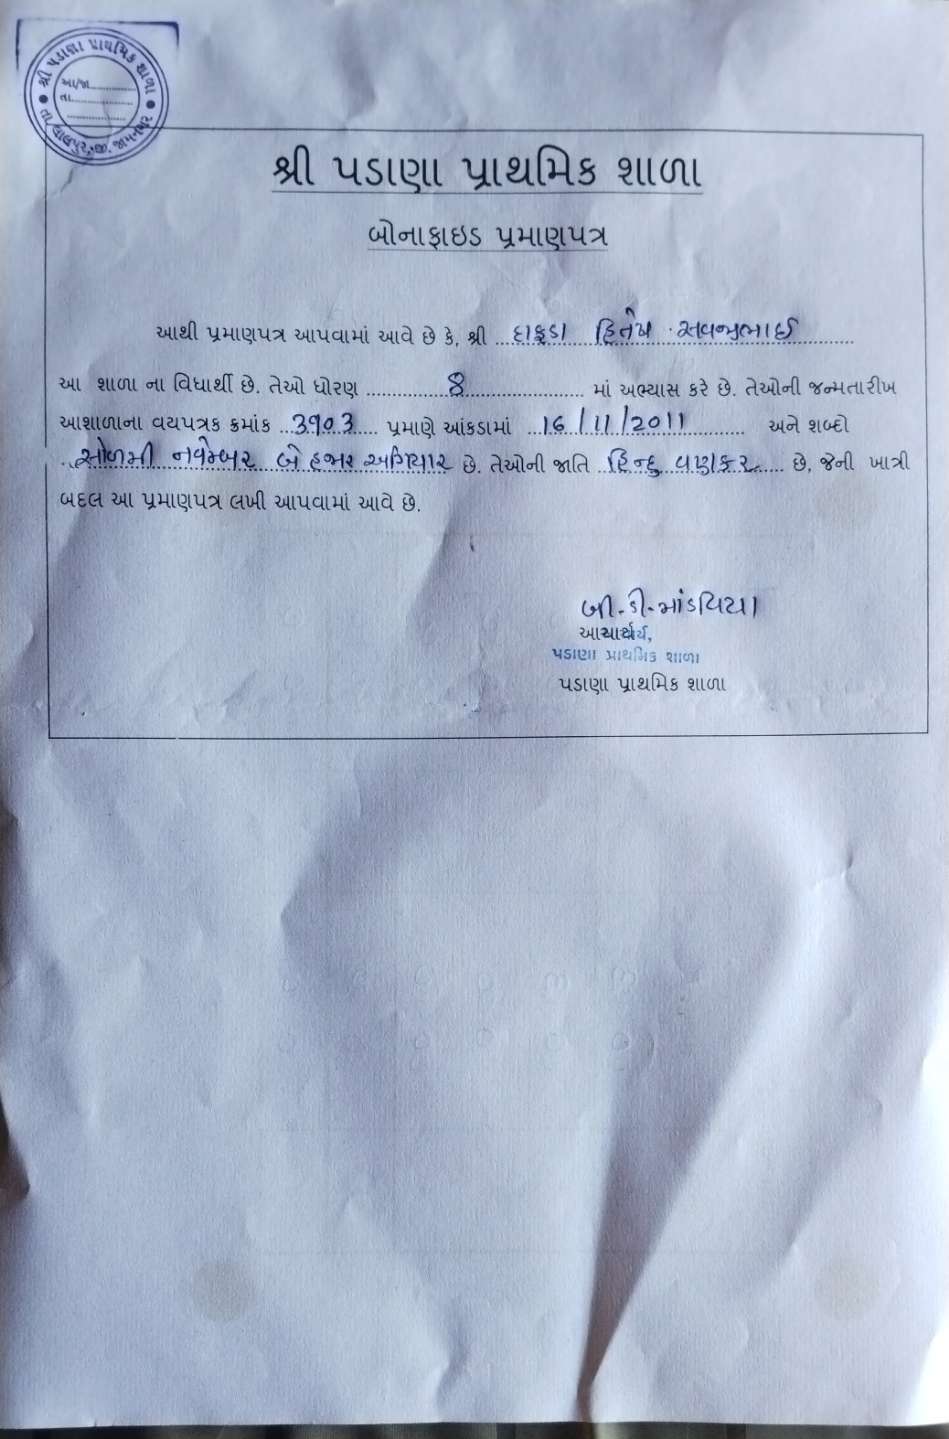 શ્રી પડાણા પ્રાથમિક શાળા
આ/જા
તા.
તા. લાલપુર, જી. જામનગર
શ્રી પડાણા પ્રાથમિક શાળા
બોનાફાઇડ પ્રમાણપત્ર
આથી પ્રમાણપત્ર આપવામાં આવે છે કે, શ્રી દાફડા હિતેષ સવજીભાઈ
આ શાળા ના વિધાર્થી છે. તેઓ ધોરણ 8 માં અભ્યાસ કરે છે. તેઓની જન્મતારીખ
આશાળાના વયપત્રક ક્રમાંક ૩૧૦૩ પ્રમાણે આંકડામાં 16/11/2011 અને શબ્દો
સોળમી નવેમ્બર બે હજાર અગિયાર છે. તેઓની જાતિ હિન્દુ વણકર છે, જેની ખાત્રી
બદલ આ પ્રમાણપત્ર લખી આપવામાં આવે છે.
બી.ડી.માંડવિયા
આચાર્ય,
પડાણા પ્રાથમિક શાળા
પડાણા પ્રાથમિક શાળા